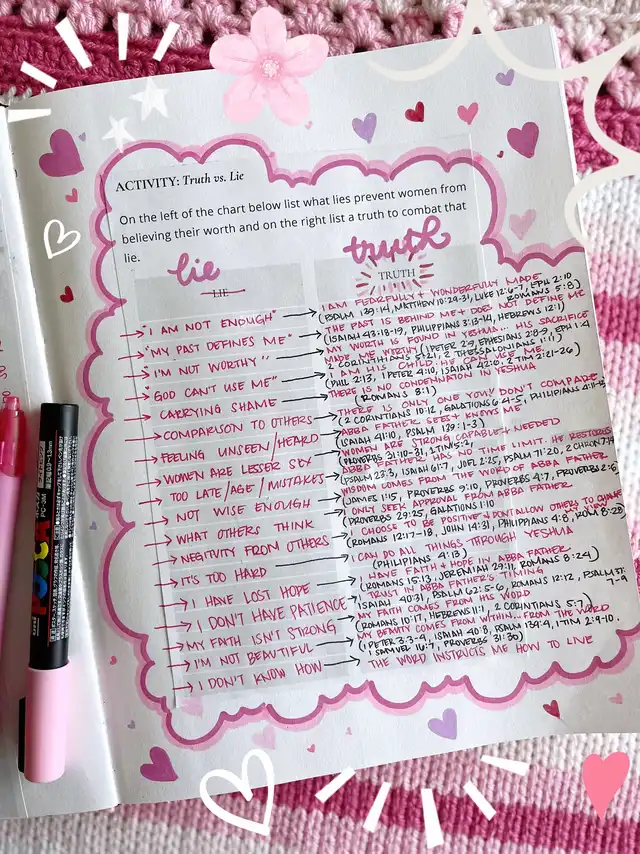 ACTIVITY: Truth vs. Lie
On the left of the chart below list what lies prevent women from
believing their worth and on the right list a truth to combat that
lie.
lie
truth
LIE
TRUTH
"I AM NOT ENOUGH"
I AM FEARFULLY + WONDERFULLY MADE
(PSALM 139:14, MATTHEW 10:29-31, LUKE 12:6-7, EPH 2:10
ROMANS 5:8)
"MY PAST DEFINES ME"
THE PAST IS BEHIND ME + DOES NOT DEFINE ME
(ISAIAH 43:18-19, PHILIPPIANS 3:13-14, HEBREWS 12:1)
"I'M NOT WORTHY"
MY WORTH IS FOUND IN YESHUA... HIS SACRIFICE
MADE ME WORTHY (1 PETER 2:9, EPHESIANS 2:8-9, EPH 1:4
2 CORINTHIANS 5:21, 2 THESSALONIANS 1:11)
GOD CAN'T USE ME"
I AM HIS CHILD. HE CAN USE ME.
(PHIL 2:13, 1 PETER 4:10, ISAIAH 42:10, 2 TIM 2:21-26)
CARRYING SHAME
THERE IS NO CONDEMNATION IN YESHUA
(ROMANS 8:1)
COMPARISON TO OTHERS
THERE IS ONLY ONE YOU! DON'T COMPARE
(2 CORINTHIANS 10:12, GALATIONS 6:4-5, PHILIPPIANS
FEELING UNSEEN/HEARD
ABBA FATHER SEES + KNOWS ME
(ISAIAH 41:10, PSALM 139:1-3)
WOMEN ARE LESSER SEX
WOMEN ARE STRONG CAPABLE + NEEDED
(PROVERBS 31:10-31, 1 TIM
TOO LATE/AGE/MISTAKES
ABBA FATHER HAS NO TIME LIMIT. HE RESTORES
(PSALM 23:3, ISAIAH 61:7, JOEL 2:25, PSALM 71:20, 2 CHRON 7:14)
NOT WISE ENOUGH
WISDOM COMES FROM THE WORD OF ABBA FATHER
(JAMES 1:5, PROVERBS 9:10, PROVERBS 4:7, PROVERBS 2:6)
WHAT OTHERS THINK
ONLY SEEK APPROVAL FROM ABBA FATHER
PROVERBS 29:25, GALATIONS 1:10
NEGTIVITY FROM OTHERS
CHOOSE TO BE POSITIVE + DONT ALLOW OTHERS TO CHANGE
(ROMANS 12:17-18, JOHN 14:31, PHILIPPIANS 4:8, ROM 8:28)
IT'S TOO HARD
I CAN DO ALL THINGS THROUGH YESHUA
(PHILIPPIANS 4:13)
I HAVE LOST HOPE
I HAVE FAITH + HOPE IN ABBA FATHER
(ROMANS 15:13, JEREMIAH 29:11, ROMANS 8:24)
I DON'T HAVE PATIENCE
TRUST IN ABBA FATHER'S TIMING
ISAIAH 40:31, PSALM 62:5-6, ROMANS 12:12, PSALM 37:
7-9
MY FAITH ISN'T STRONG
MY FAITH COMES FROM HIS WORD
(ROMANS 10:17, HEBREWS 11:1, 2 CORINTHIANS 5:7)
I'M NOT BEAUTIFUL
MY BEAUTY COMES FROM WITHIN... FROM THE WORD
(1 PETER 3:3-4, ISAIAH 40:8, PSALM 139:4, 1 TIM 2:9-10,
1 SAMUEL 16:7, PROVERBS 31:30)
I DON'T KNOW HOW
THE WORD INSTRUCTS ME HOW TO LIVE
uni POSCA
PC-3M
0.9-1.3mm